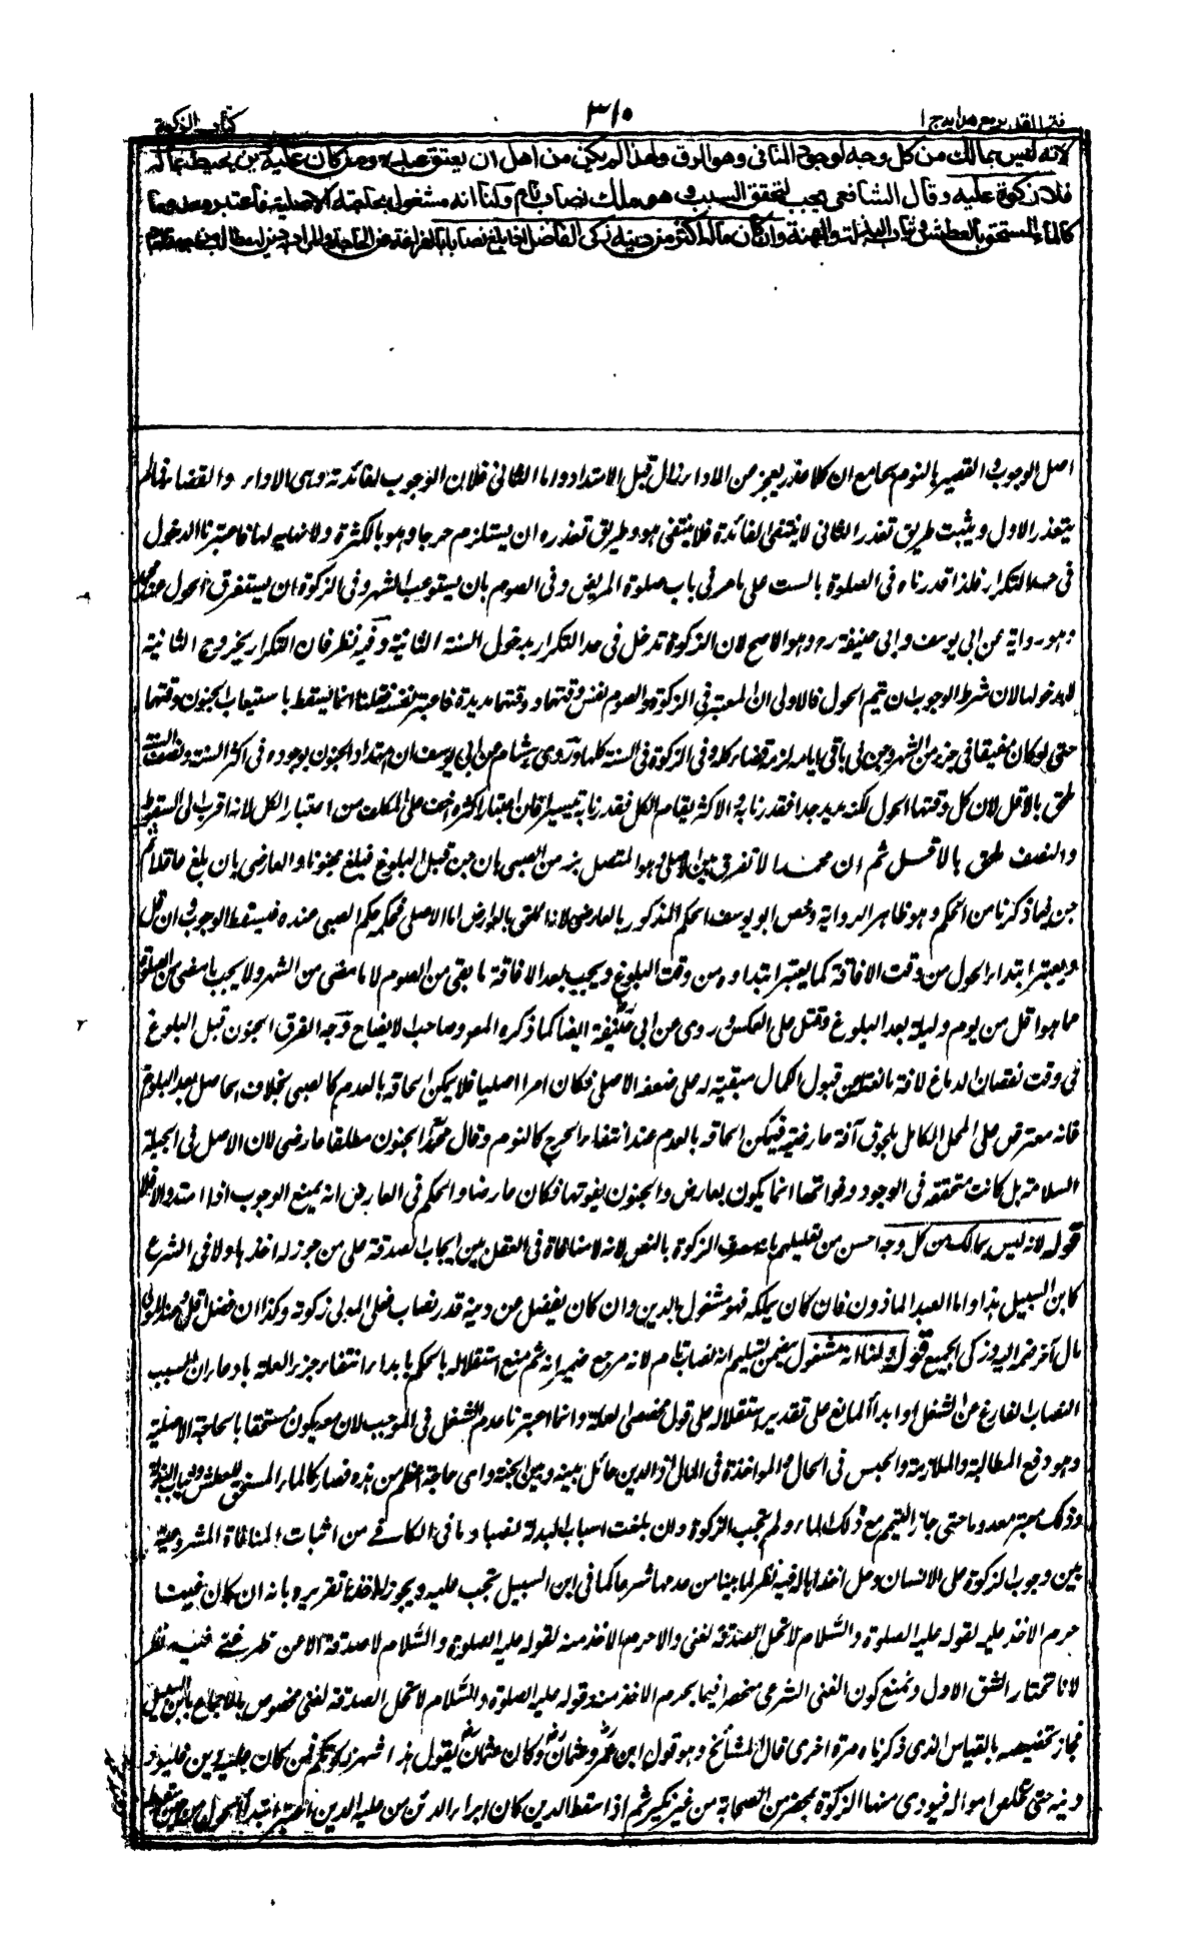 فتح القدير مع هدايه ج ا
٣١٠
كتاب الزكوة
لانه ليس بمالك من كل وجه لوجود المنافى وهو الرق ولهذا لم يكن من اهل ان يعتق عبده ومن كان عليه دين يحيط بماله
فلا زكوة عليه وقال الشافعى يجب لتحقق السبب وهو ملك نصاب تام ولنا انه مشغول بحاجته الاصلية فاعتبر معدوما
كالماء المستحق بالعطش وثياب البذلة والمهنة وان كان ماله اكثر من دينه زكى الفاضل اذا بلغ نصابا بالفراغه عن الحاجة والمراد به دين له مطالب من جهة العباد
اصل الوجوب والقصير بالنوم بجامع ان كلا عذر يعجز عن الاداء زال قبل الامتداد واما الثانى فلان الوجوب لفائدته وهى الاداء والقضاء فما لم
يتعذر الاول ويثبت طريق تعذر الثانى لا ينتفى الفائدة فلا ينتفى هو وطريق تعذره ان يستلزم حرجا وهو بالكثرة ولا نهاية لها فاعتبرنا الدخول
فى حد التكرار فلذا قدرناه فى الصلوة بالست على ما مر فى باب صلوة المريض وفى الصوم بان يستوعب الشهر وفى الزكوة ان يستغرق الحول عند محمد
وهو رواية عن ابى يوسف وابى حنيفة رح وهو الاصح لان الزكوة تدخل فى حد التكرار بدخول السنة الثانية وفيه نظر فان التكرار بخروج الثانية
لا بدخولها لان شرط الوجوب ان يتم الحول فالاولى ان المعتبر فى الزكوة والصوم نفس وقتهما ووقتهما مديدة فاعتبر نفسه فقلنا انما يسقط باستيعاب الجنون وقتهما
حتى لو كان مفيقا فى جزء من الشهر وجن فى باقى ايامه لزمه قضاء كله وفى الزكوة فى السنة كلها وروى هشام عن ابى يوسف ان امتداد الجنون بوجوده فى اكثر السنة ونصف السنة
ملحق بالاقل لان كل وقتها الحول لكنه مديد جدا فقدرنا به الاكثر يقام الكل فقدرنا به تيسيرا فان اعتبار اكثره اخف على المكلف من اعتبار الكل لانه اقرب الى السقوط
والنصف ملحق بالاقل ثم ان محمدا لا تفرق بين الاصلى وهو المتصل بزمن الصبى بان جن قبل البلوغ فبلغ مجنونا والعارضى بان بلغ عاقلا ثم
جن فيما ذكرنا من الحكم وهو ظاهر الرواية وخص ابو يوسف الحكم المذكور بالعارض لانه الملحق بالعوارض اما الاصلى فحكمه حكم الصبى عنده فيسقط الوجوب وان قل
ويعتبر ابتداء الحول من وقت الافاقة كما يعتبر ابتداؤه من وقت البلوغ ويجب بعد الافاقة ما بقى من الصوم لا ما مضى من الشهر ولا يجب ما مضى من الصلوة
مما هو اقل من يوم وليلة بعد البلوغ وقيل على العكس وروى عن ابى حنيفة ايضا كما ذكره المص وصاحب الايضاح وجه الفرق ان الجنون قبل البلوغ
فى وقت نقصان الدماغ لافة مانعة عن قبول الكمال مبقية له على ضعفه الاصلى فكان امرا اصليا فلا يمكن الحاقه بالعدم كالصبى بخلاف الحاصل بعد البلوغ
فانه معترض على المحل الكامل بلحوق آفة عارضية فيمكن الحاقه بالعدم عند انتفاء الحرج كالنوم وقال محمد الجنون مطلقا عارضى لان الاصل فى الجبلة
السلامة بل كانت متحققة فى الوجود وفواتها انما يكون بعارض والجنون يفوتها فكان عارضا والحكم فى العارض انه يمنع الوجوب اذا امتد والا فلا
قوله لانه ليس بمالك من كل وجه احسن من تعليلهم بانه مصرف الزكوة بالنص لانه لا منافاة فى العقل بين ايجاب الصدقة على من جوز له اخذها ولا فى الشرع
كابن السبيل هذا واما العبد الماذون فان كان يملكه فهو مشغول بالدين وان كان يفضل عن دينه قدر نصاب فعلى المولى زكوته وكذا ان فضل اقل وعند المولى
مال آخر ضمه اليه وزكى الجميع قوله ولنا انه مشغول يتضمن تسليم انه نصاب تام لانه مرجع ضمير انه ثم منع استقلاله بالحكم بابداء انتفاء جزء العلة بادعاء ان السبب
النصاب الفارغ عن الشغل او ابداء المانع على تقدير استقلاله على قول مخصصى العلة وانما اعتبرنا عدم الشغل فى الموجب لان معه يكون مستحقا بالحاجة الاصلية
وهو دفع المطالبة والملازمة والحبس فى الحال والمواخذة فى المال اذ الدين حائل بينه وبين الجنة واى حاجة اعظم من هذه فصار كالماء المستحق للعطش وثياب البذلة
وذلك معتبر معدوما حتى جاز التيمم مع ذلك الماء ولم تجب الزكوة وان بلغت اسباب البذلة نصبا وما فى الكافى من اثبات المنافاة المشروعية
بين وجوب الزكوة على الانسان وحل اخذها له فيه نظر لما بينا من عدمها شرعا كما فى ابن السبيل تجب عليه ويجوز له اخذها تقريره بانه ان كان غنيا
حرم الاخذ عليه لقوله عليه الصلوة والسلام لا تحل الصدقة لغنى والا حرم الاخذ منه لقوله عليه الصلوة والسلام لا صدقة الا عن ظهر غنى فيه نظر
لانا نختار الشق الاول ونمنع كون الغنى الشرعى منحصرا فيما يحرم الاخذ منه وقوله عليه الصلوة والسلام لا تحل الصدقة لغنى مخصوص بالاجماع بابن السبيل
فجاز تخصيصه بالقياس الذى ذكرناه مرة اخرى قال المشائخ وهو قول ابن عمر وعثمان وكان عثمان يقول هذا شهر زكوتكم فمن كان عليه دين فليؤد
دينه حتى تخلص امواله فيودى منها الزكوة بمحضر من الصحابة من غير نكير ثم اذا سقط الدين كان ابراء الدائن من عليه الدين اعتبر ابتداء الحول من حين سقوطه